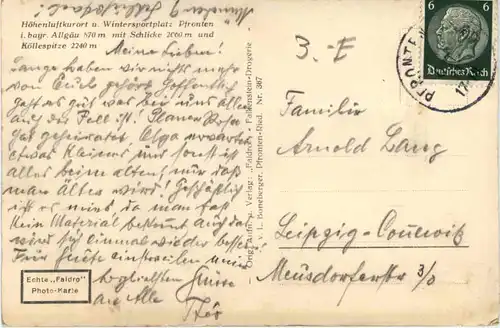 Höhenluftkurort u. Wintersportplatz Pfronten
i. bayr. Allgäu 870 m mit Schlicke 2060 m und
Köllespitze 2240 m
Meine Lieben!
Lange haben wir nichts mehr
von Euch gehört hoffentlich
geht es gut was bei uns allen
auch der Fall ist!
geheiratet Olga erwartet
etwas Kleines und sonst ist
alles beim alten, nur daß
man älter wird! Geschäftlich
ist es mies, da man fast
kein Material bekommt auch da
wird es einmal wieder besser!
Für heute einstweilen
herzlichste Grüsse
an Alle
Echte „Faldro"
Photo-Karte
Orig.-Aufn. u. Verlag: „Faldro" Falkenstein-Drogerie
L. Boneberger, Pfronten-Ried. Nr. 367
3.-E
6 6
Deutsches Reich
PFRONTEN
Familie
Arnold Lang
Leipzig-Connewitz
Meusdorferstr